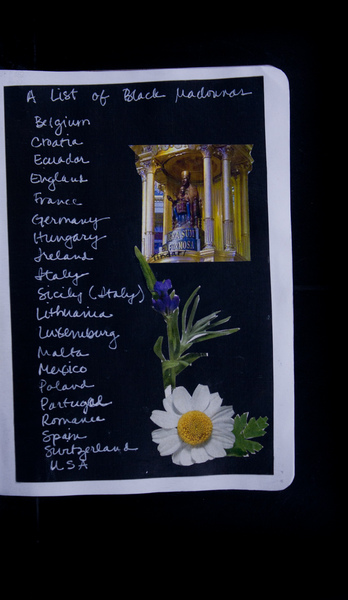 A List of Black Madonnas
Belgium
Croatia
Ecuador
England
France
Germany
Hungary
Ireland
Italy
Sicily (Italy)
Lithuania
Luxemburg
Malta
Mexico
Poland
Portugal
Romania
Spain
Switzerland
USA
FORMOSA